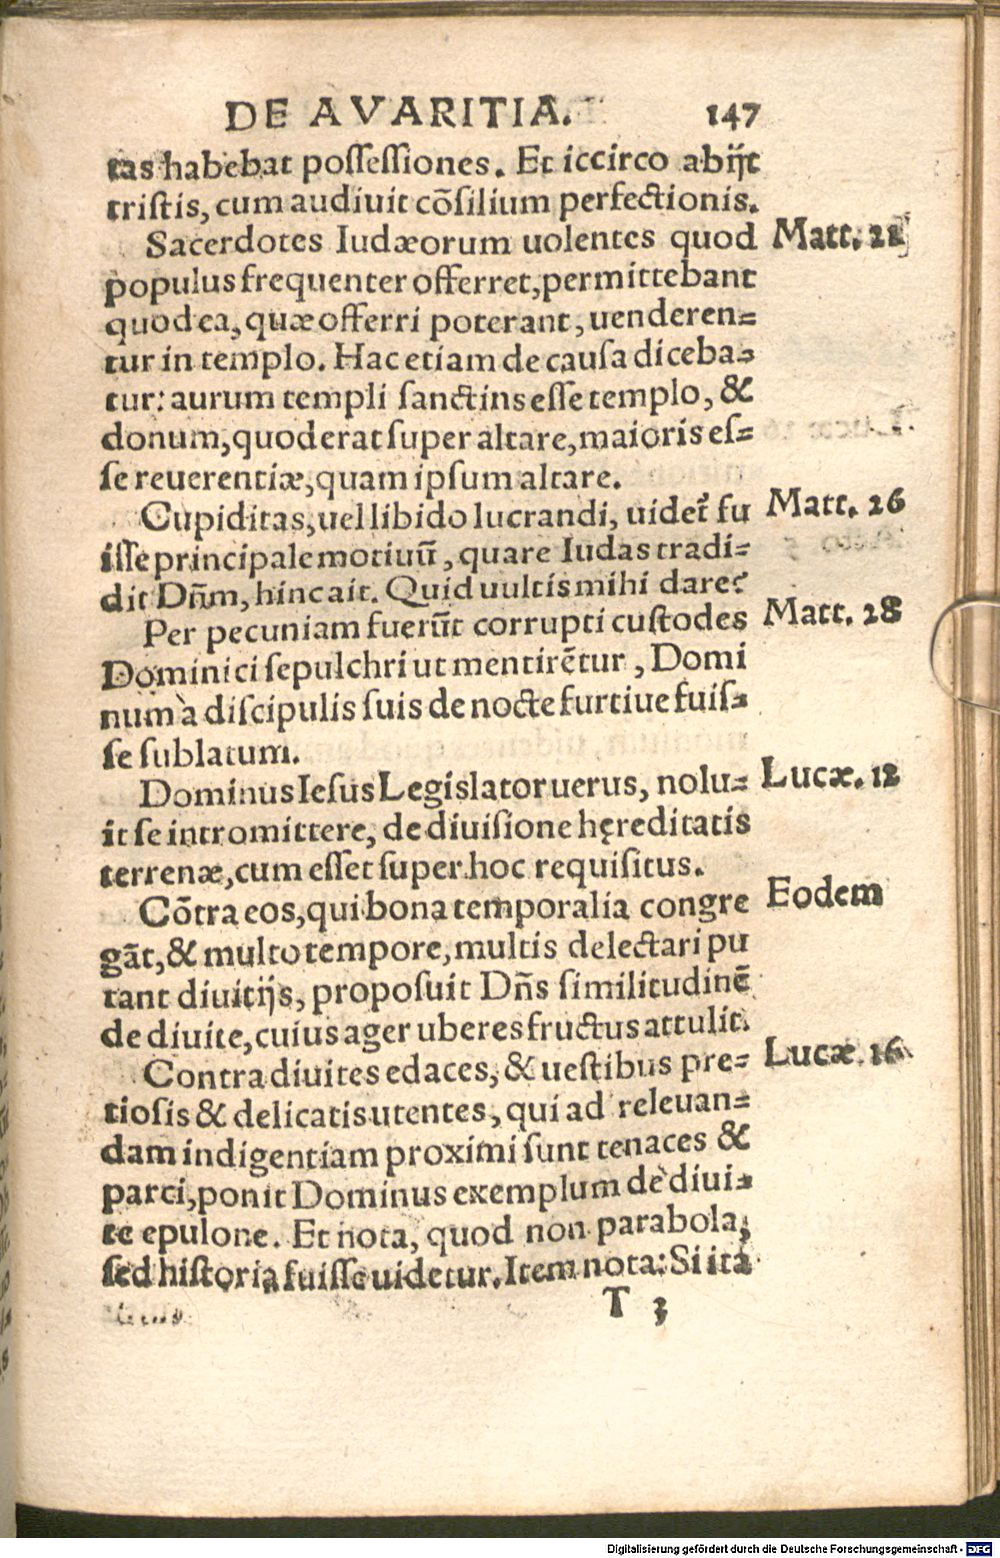 DE AVARITIA. 147
tas habebat possessiones. Et iccirco abijt
tristis, cum audiuit cōsilium perfectionis.
Sacerdotes Iudæorum uolentes quod Matt. 21
populus frequenter offerret, permittebant
quod ea, quæ offerri poterant, uenderen=
tur in templo. Hac etiam de causa diceba=
tur: aurum templi sanctins esse templo, &
donum, quod erat super altare, maioris es=
se reuerentiæ, quam ipsum altare.
Cupiditas, uel libido lucrandi, uidet᷑ fu Matt. 26
isse principale motiuū, quare Iudas tradi=
dit Dn̄m, hinc ait. Quid uultis mihi dare?
Per pecuniam fuerūt corrupti custodes Matt. 28
Dominici sepulchri ut mentirētur, Domi
num à discipulis suis de nocte furtiue fuis=
se sublatum.
Dominus Iesus Legislator uerus, nolu= Lucæ. 12
it se intromittere, de diuisione hęreditatis
terrenæ, cum esset super hoc requisitus.
Cōtra eos, qui bona temporalia congre Eodem
gāt, & multo tempore, multis delectari pu
tant diuitijs, proposuit Dn̄s similitudinē
de diuite, cuius ager uberes fructus attulit.
Contra diuites edaces, & uestibus pre= Lucæ. 16
tiosis & delicatis utentes, qui ad releuan=
dam indigentiam proximi sunt tenaces &
parci, ponit Dominus exemplum de diui=
te epulone. Et nota, quod non parabola,
sed historia fuisse uidetur. Item nota: Si ita
T 3
Digitalisierung gefördert durch die Deutsche Forschungsgemeinschaft - DFG